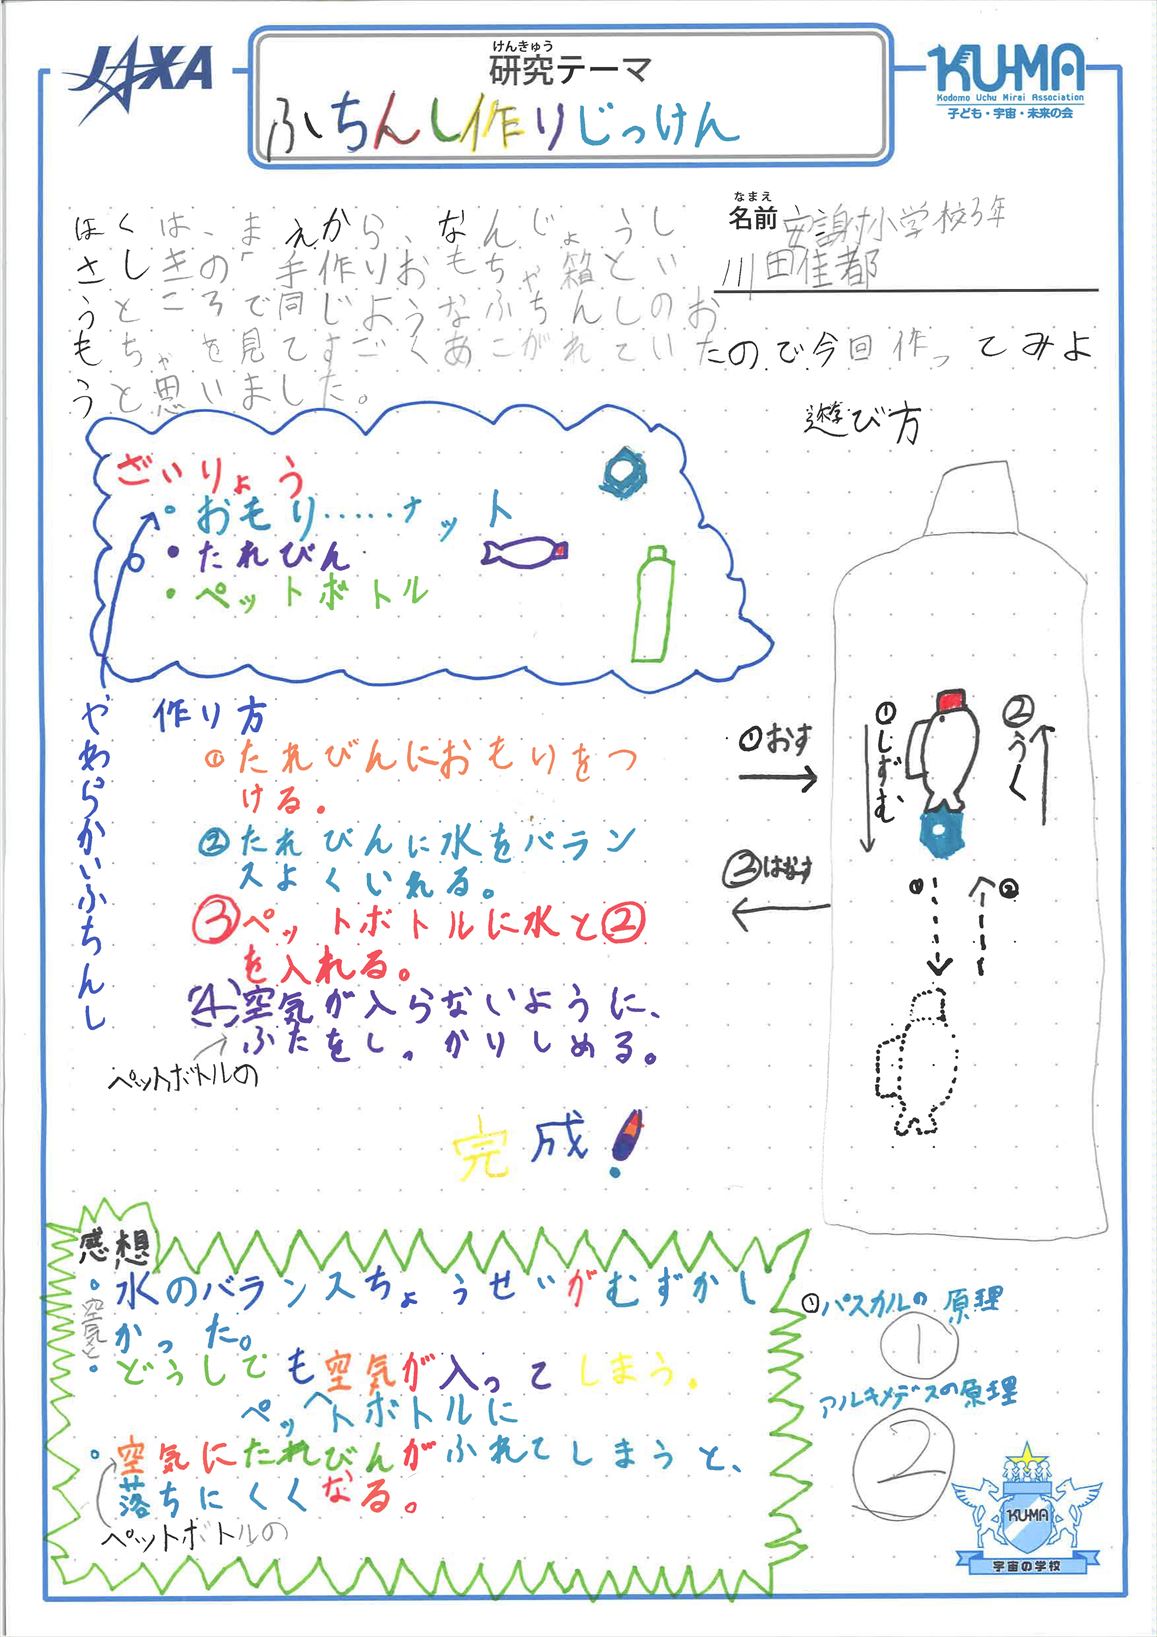 JAXA
けんきゅう
研究テーマ
KU-MA
Kodomo Uchu Mirai Association
子ども・宇宙・未来の会
ふちんし作りじっけん
なまえ
名前 安謝小学校3年
川田佳都
ぼくは、まえから、なんじょうし
さしきの「手作りおもちゃ箱とい
うところで同じようなふちんしのお
もちゃを見てすごくあこがれていたので今回作ってみよ
うと思いました。
ざいりょう
・おもり・・・・・ナット
・たれびん
・ペットボトル
やわらかいふちんし
作り方
①たれびんにおもりをつ
ける。
②たれびんに水をバラン
スよくいれる。
③ペットボトルに水と②
を入れる。
④空気が入らないように、
ふたをしっかりしめる。
ペットボトルの
完成!
遊び方
①おす
①しずむ
②うく
②はなす
①
②
感想
・水のバランスちょうせいがむずかし
かった。
空気と
・どうしても空気が入ってしまう。
ペットボトルに
・空気にたれびんがふれてしまうと、
落ちにくくなる。
ペットボトルの
①パスカルの原理
①
アルキメデスの原理
②
KU-MA
宇宙の学校